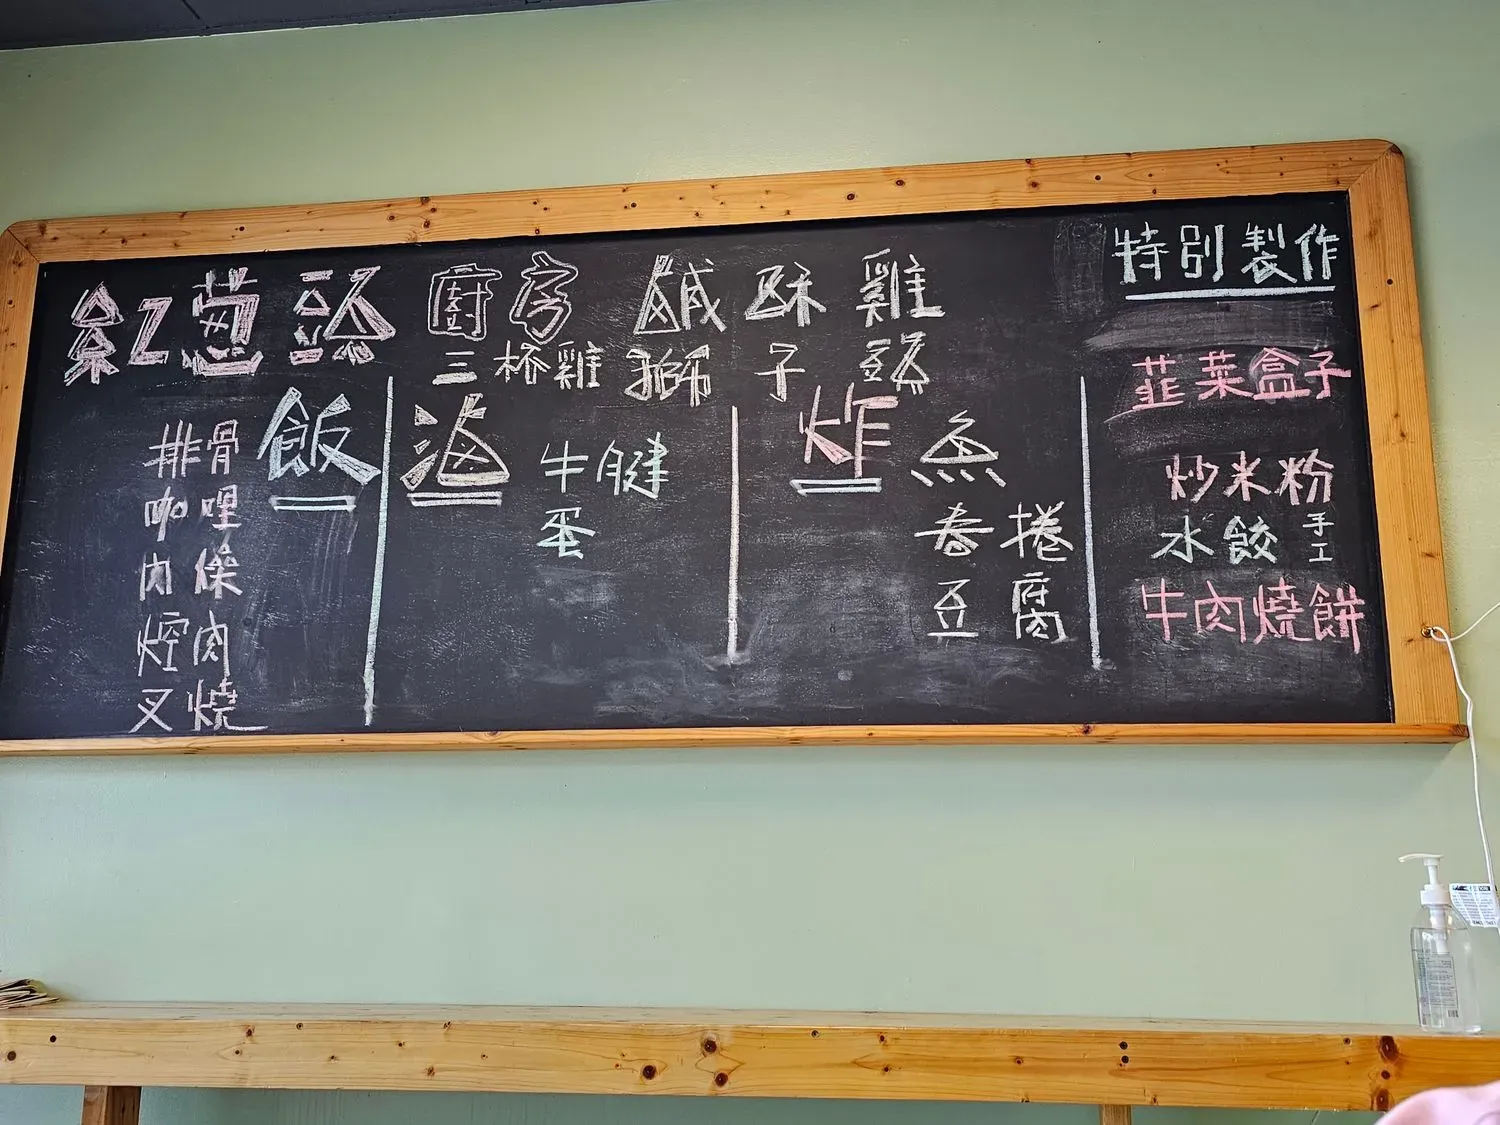 紅葱頭 廚房 鹹酥雞
三杯雞 獅子頭
飯
排骨
咖哩
肉燥
焢肉
叉燒
滷
牛腱
蛋
炸
魚
春捲
豆腐
特別製作
韮菜盒子
炒米粉
水餃 手工
牛肉燒餅